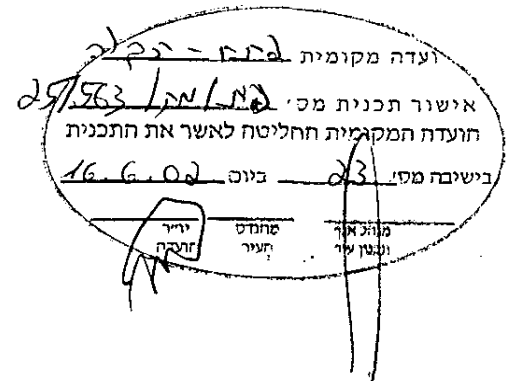 ועדה מקומית פתח - תקוה
אישור תכנית מס׳ פת/מק/25/563
הועדה המקומית החליטה לאשר את התכנית
בישיבה מס׳ 23 ביום 16.6.02
מנהל אגף מהנדס יו״ר
ותכנון עיר העיר הועדה